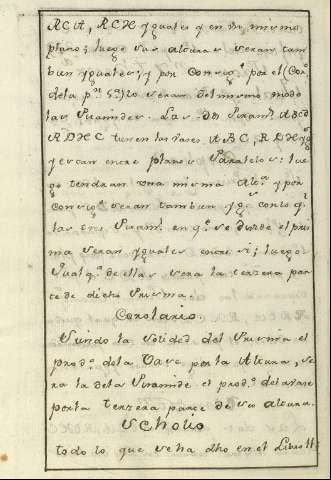 RCA, RCH yguales y en un mismo
plano; luego sus alturas seran tam
bien yguales; y por Conseq.ª por el (Cor.º
de la p.ⁿ 5ª) lo seran del mismo modo
las Piramides. Las dos Piram.ˢ ABCD
RDHC tienen las vases ABC, RDH yg.ˢ
y estan entre planos Paralelos: lue
go tendran una misma Alt.ª y por
Conseq.ª seran tambien yg.ˢ con lo q.ᵉ
las tres Piram.ˢ en q.ᵉ se divide el pris
ma seran yguales entre si; luego
qualq.ª de ellas sera la terzera par
te de dicho Prisma.
Corolario.
Siendo la solidez del Prisma el
prod.º de la Vase por la Altura, se
ra la de la Piramide el prod.º de la vase
por la terzera parte de su altura.
Scholio
todo lo que se ha dho en el Libro 11